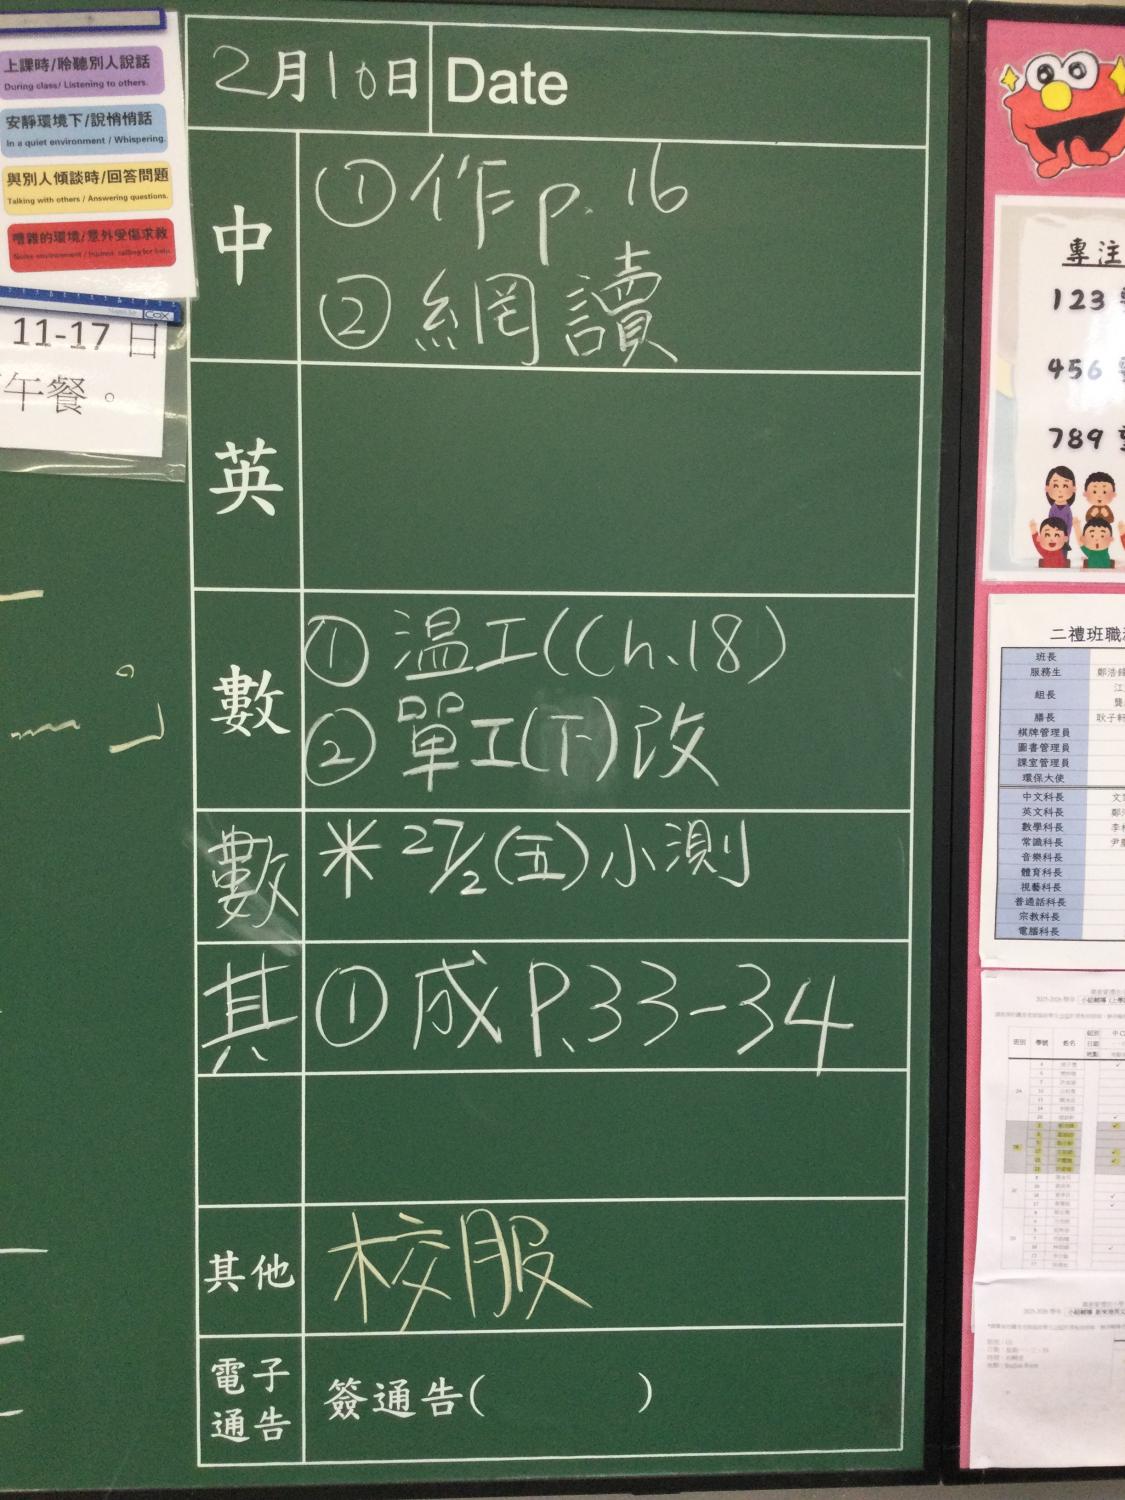 上課時/聆聽別人說話
During class/ Listening to others.
安靜環境下/說悄悄話
In a quiet environment / Whispering.
與別人傾談時/回答問題
Talking with others / Answering questions.
嘈雜的環境/意外受傷求救
COX
11-17 日
午餐。
2月10日 Date
中
①作p.16
②網讀
英
數
①溫工(Ch.18)
②單工(下)改
數
米 27/2(五)小測
其
①成P.33-34
其他
校服
電子
通告
簽通告( )
專注
123
456
789
二禮班職
班長
服務生
組長
膳長
棋牌管理員
圖書管理員
課室管理員
環保大使
中文科長
英文科長
數學科長
常識科長
音樂科長
體育科長
視藝科長
普通話科長
宗教科長
電腦科長
班別 學號 姓名